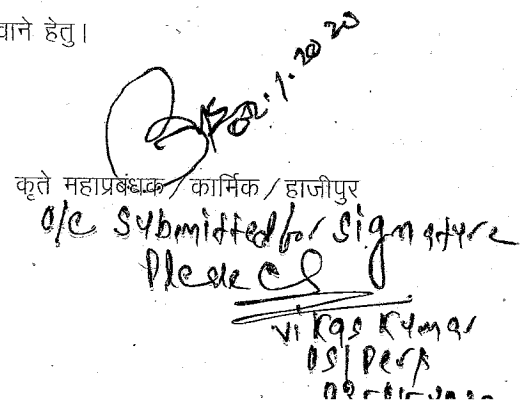 वाने हेतु।
02.1.2020
कृते महाप्रबंधक / कार्मिक / हाजीपुर
O/C Submitted for signature
Please
Vikas Kumar
OS/Pers